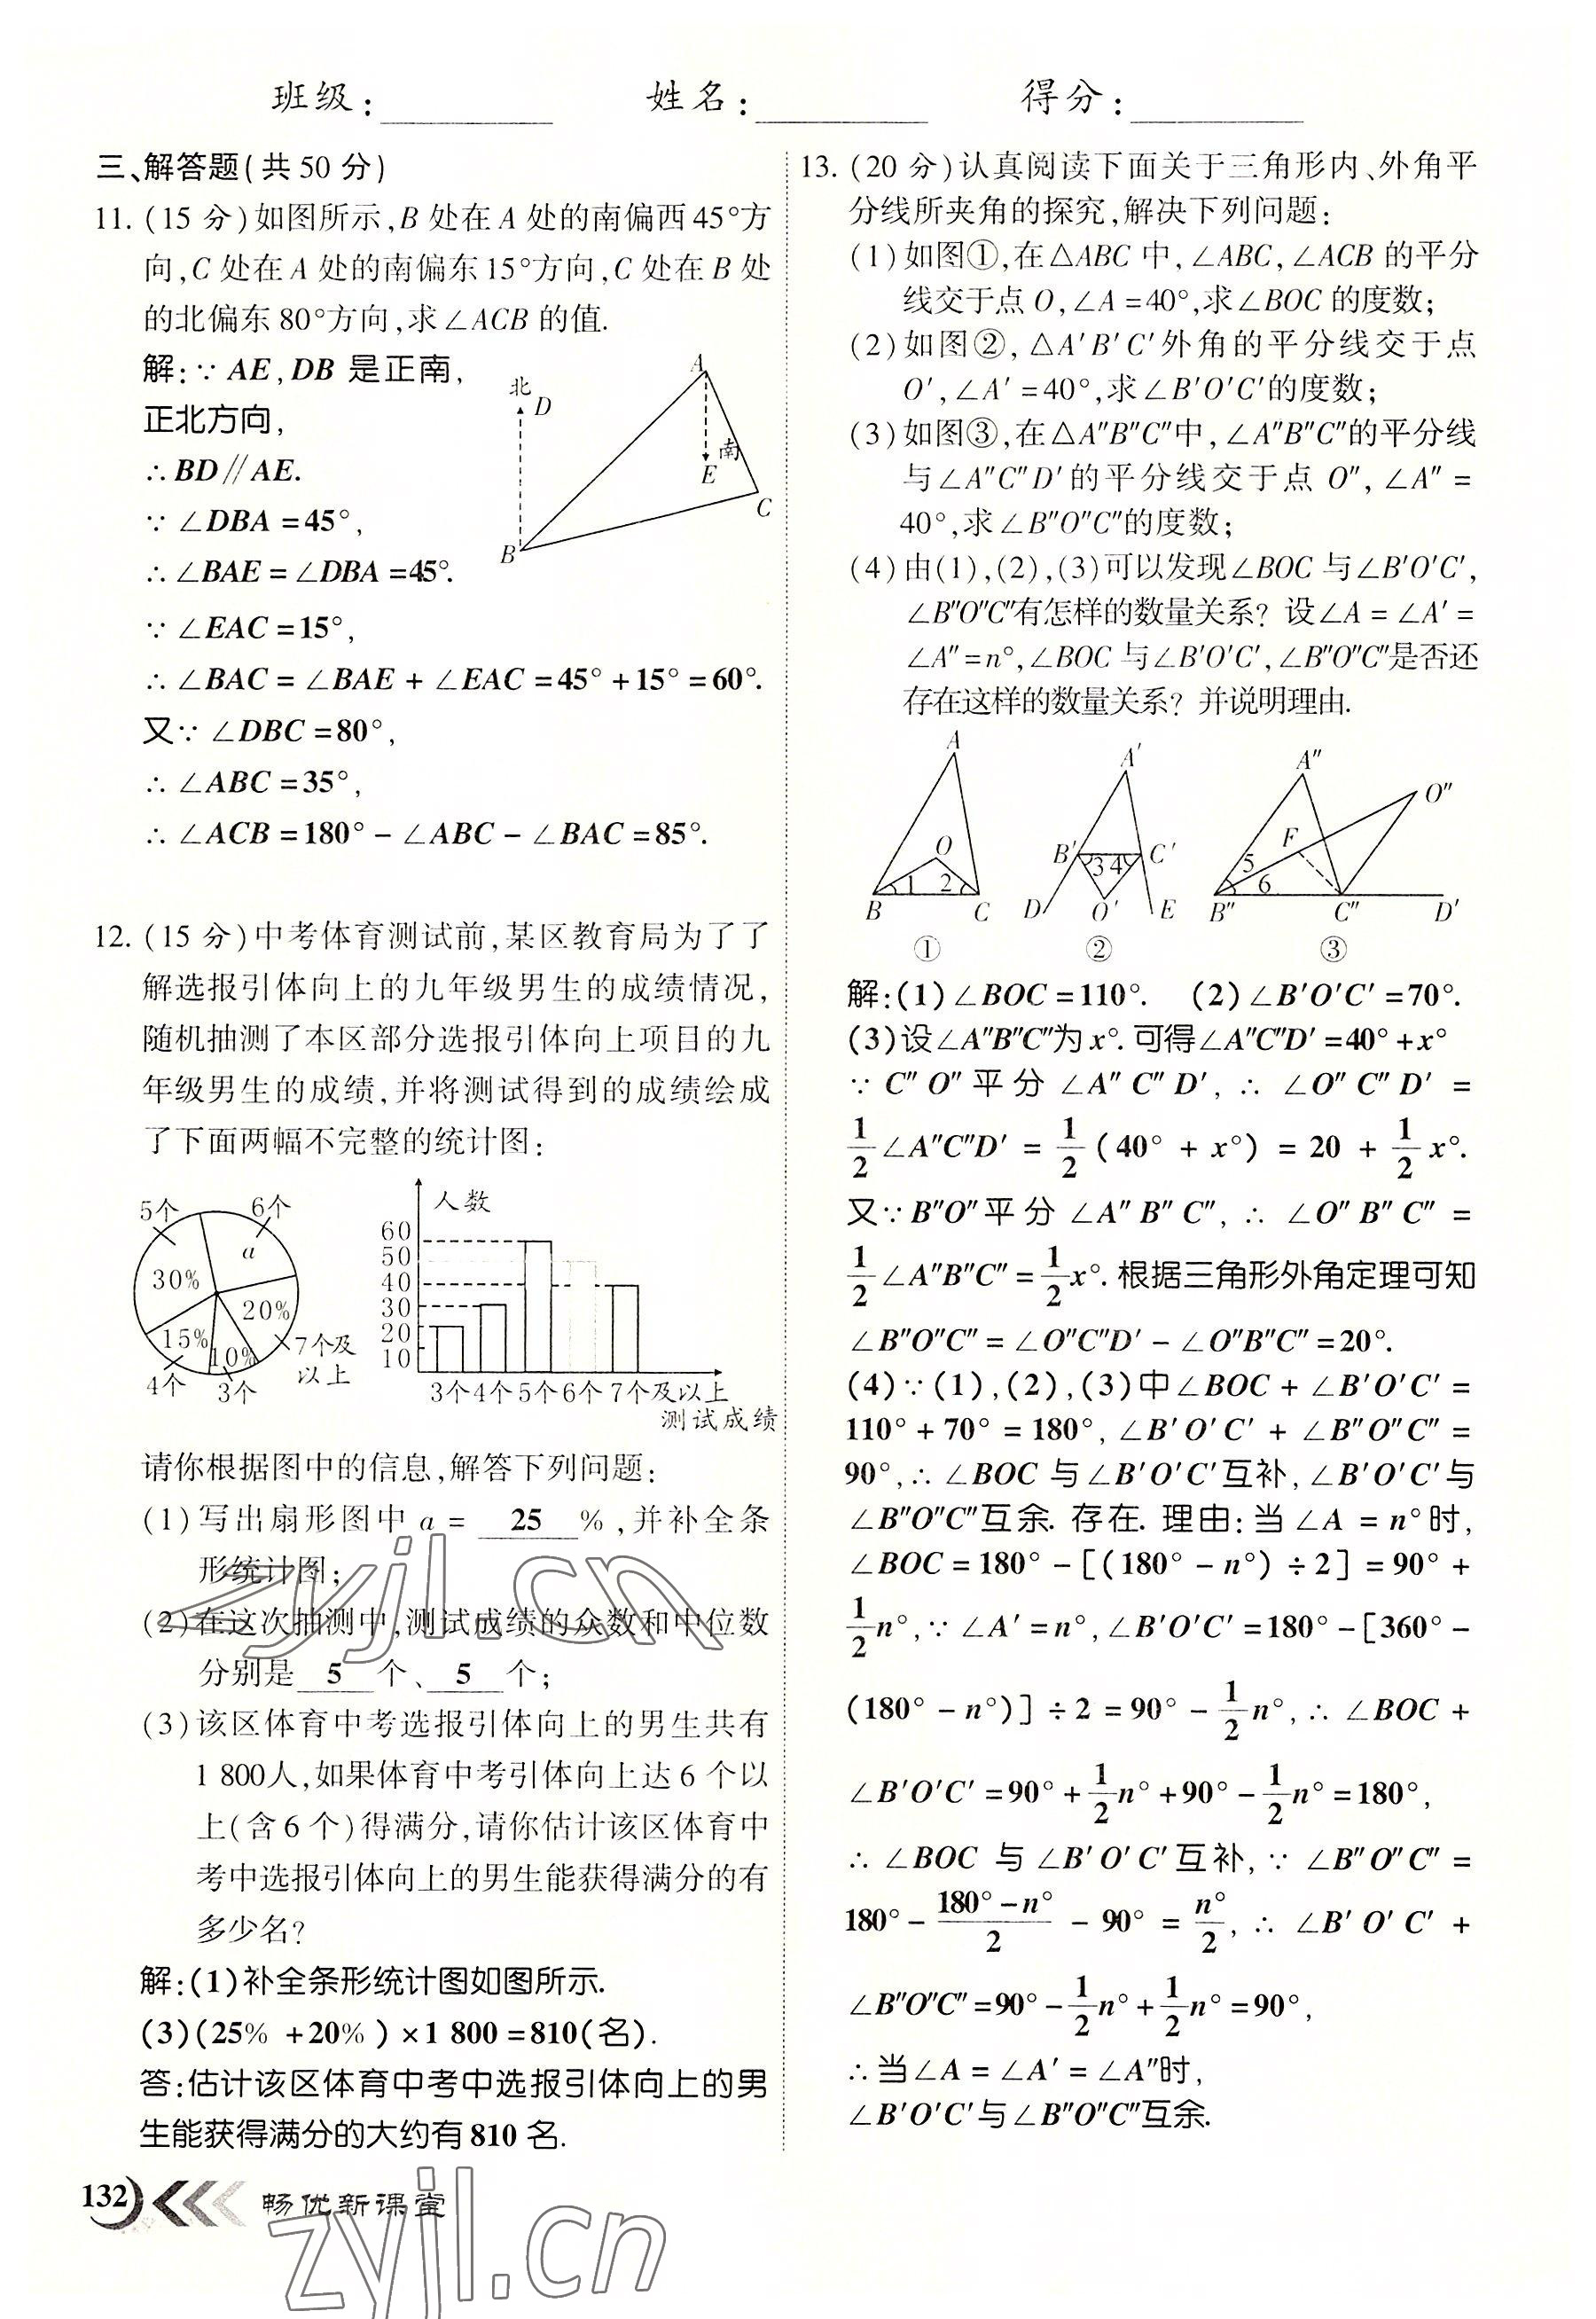 班级: 姓名: 得分:
三、解答题(共50分)
11. (15分)如图所示,B处在A处的南偏西45°方
向,C处在A处的南偏东15°方向,C处在B处
的北偏东80°方向,求∠ACB的值.
解:∵AE,DB是正南,
正北方向,
∴BD∥AE.
∵∠DBA=45°,
∴∠BAE=∠DBA=45°.
∵∠EAC=15°,
∴∠BAC=∠BAE+∠EAC=45°+15°=60°.
又∵∠DBC=80°,
∴∠ABC=35°,
∴∠ACB=180°-∠ABC-∠BAC=85°.
北
D
A
南
E
C
B
12. (15分)中考体育测试前,某区教育局为了了
解选报引体向上的九年级男生的成绩情况,
随机抽测了本区部分选报引体向上项目的九
年级男生的成绩,并将测试得到的成绩绘成
了下面两幅不完整的统计图:
5个 6个
a
30%
20%
15%
10%
7个及
以上
4个
3个
人数
60
50
40
30
20
10
3个 4个 5个 6个 7个及以上
测试成绩
请你根据图中的信息,解答下列问题:
(1)写出扇形图中a= 25 %,并补全条
形统计图;
(2)在这次抽测中,测试成绩的众数和中位数
分别是 5 个、 5 个;
(3)该区体育中考选报引体向上的男生共有
1 800人,如果体育中考引体向上达6个以
上(含6个)得满分,请你估计该区体育中
考中选报引体向上的男生能获得满分的有
多少名?
解:(1)补全条形统计图如图所示.
(3)(25% +20%)×1 800=810(名).
答:估计该区体育中考中选报引体向上的男
生能获得满分的大约有810名.
132 畅优新课堂
13. (20分)认真阅读下面关于三角形内、外角平
分线所夹角的探究,解决下列问题:
(1)如图①,在△ABC中,∠ABC,∠ACB的平分
线交于点O,∠A=40°,求∠BOC的度数;
(2)如图②,△A′B′C′外角的平分线交于点
O′,∠A′=40°,求∠B′O′C′的度数;
(3)如图③,在△A″B″C″中,∠A″B″C″的平分线
与∠A″C″D′的平分线交于点O″,∠A″=
40°,求∠B″O″C″的度数;
(4)由(1),(2),(3)可以发现∠BOC与∠B′O′C′,
∠B″O″C″有怎样的数量关系?设∠A=∠A′=
∠A″=n°,∠BOC与∠B′O′C′,∠B″O″C″是否还
存在这样的数量关系?并说明理由.
A
O
1 2
B C
①
A′
B′ C′
3 4
D O′ E
②
A″
O″
F
5
6
B″ C″ D′
③
解:(1)∠BOC=110°. (2)∠B′O′C′=70°.
(3)设∠A″B″C″为x°.可得∠A″C″D′=40°+x°
∵C″O″平分∠A″C″D′,∴∠O″C″D′=
1/2∠A″C″D′=1/2(40°+x°)=20+1/2x°.
又∵B″O″平分∠A″B″C″,∴∠O″B″C″=
1/2∠A″B″C″=1/2x°.根据三角形外角定理可知
∠B″O″C″=∠O″C″D′-∠O″B″C″=20°.
(4)∵(1),(2),(3)中∠BOC+∠B′O′C′=
110°+70°=180°,∠B′O′C′+∠B″O″C″=
90°,∴∠BOC与∠B′O′C′互补,∠B′O′C′与
∠B″O″C″互余.存在.理由:当∠A=n°时,
∠BOC=180°-[(180°-n°)÷2]=90°+
1/2n°,∵∠A′=n°,∠B′O′C′=180°-[360°-
(180°-n°)]÷2=90°-1/2n°,∴∠BOC+
∠B′O′C′=90°+1/2n°+90°-1/2n°=180°,
∴∠BOC与∠B′O′C′互补,∵∠B″O″C″=
180°-(180°-n°)/2-90°=n°/2,∴∠B′O′C′+
∠B″O″C″=90°-1/2n°+1/2n°=90°,
∴当∠A=∠A′=∠A″时,
∠B′O′C′与∠B″O″C″互余.
zyjl.cn
zyjl.cn